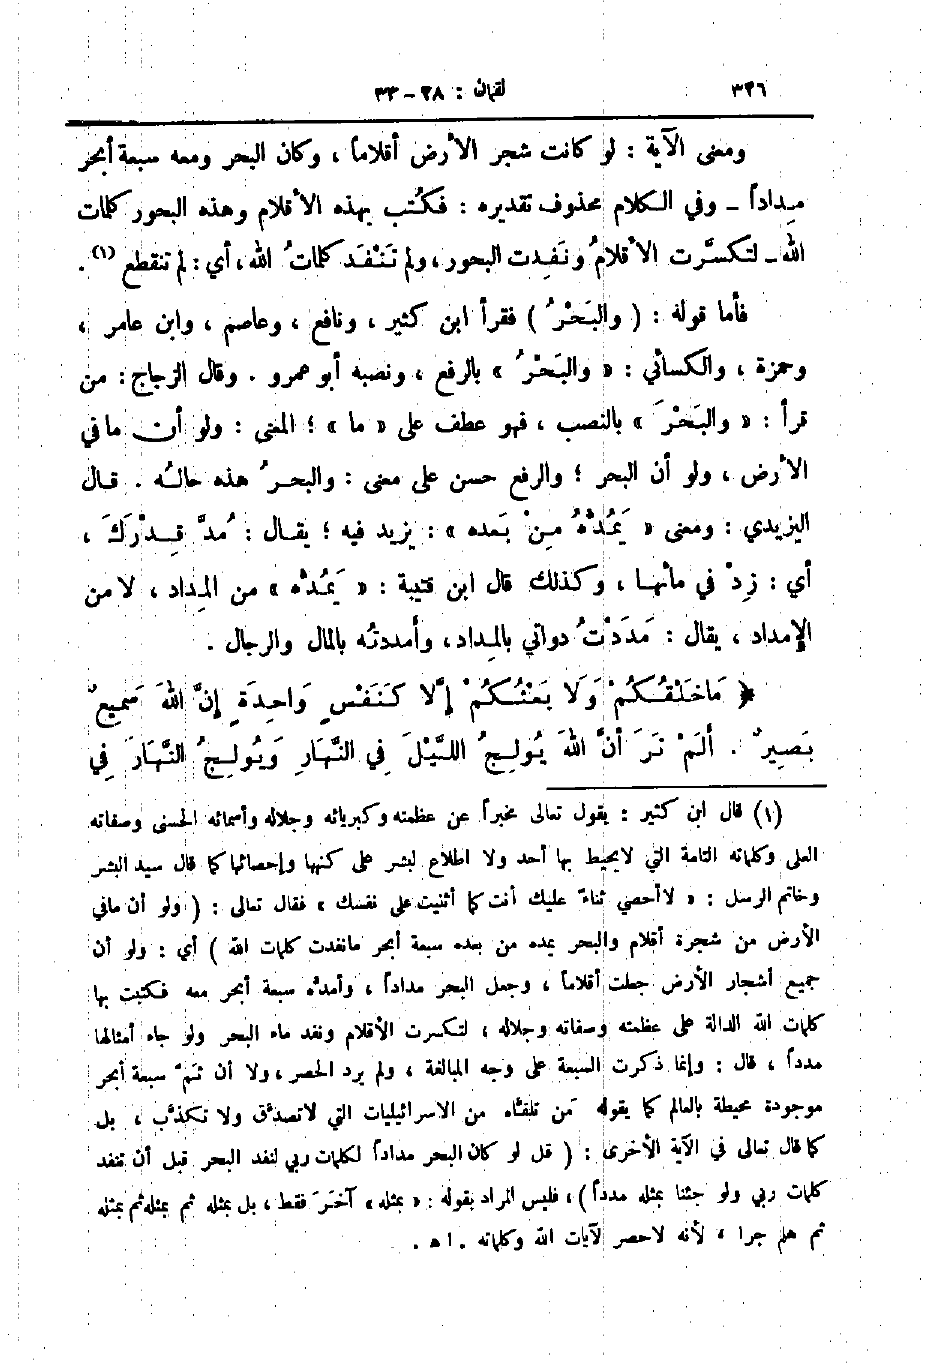 ٣٢٦ لقمان : ٢٨ - ٣٣
ومعنى الآية : لو كانت شجر الأرض أقلاماً ، وكان البحر ومعه سبعة أبحر
مِداداً ـ وفي الكلام محذوف تقديره : فكُتب بهذه الأقلام وهذه البحور كلمات
الله ـ لتكسَّرت الأقلامُ ونَفِدت البحور ، ولم تَنْفَد كلماتُ الله ، أي : لم تنقطع (١) .
فأما قوله : ( والبَحْرُ ) فقرأ ابن كثير ، ونافع ، وعاصم ، وابن عامر ،
وحمزة ، والكسائي : « والبَحْرُ » بالرفع ، ونصبه أبو عمرو . وقال الزجاج : من
قرأ : « والبَحْرَ » بالنصب ، فهو عطف على « ما » ؛ المعنى : ولو أن ما في
الأرض ، ولو أن البحر ؛ والرفع حسن على معنى : والبحرُ هذه حالُه . قال
اليزيدي : ومعنى « يَمُدُّهُ مِنْ بَعده » : يزيد فيه ؛ يقال : مُدَّ قِدْرَكَ ،
أي : زِدْ في مائها ، وكذلك قال ابن قتيبة : « يَمُدُّه » من المِداد ، لا من
الإِمداد ، يقال : مَدَدْتُ دواتي بالمِداد ، وأمددتُه بالمال والرجال .
﴿ مَا خَلْقُكُمْ وَلَا بَعْثُكُمْ إِلَّا كَنَفْسٍ وَاحِدَةٍ إِنَّ اللهَ سَمِيعٌ
بَصِيرٌ . أَلَمْ تَرَ أَنَّ اللهَ يُولِجُ اللَّيْلَ فِي النَّهَارِ وَيُولِجُ النَّهَارَ فِي
(١) قال ابن كثير : يقول تعالى مخبراً عن عظمته وكبريائه وجلاله وأسمائه الحسنى وصفاته
العلى وكلماته التامة التي لا يحيط بها أحد ولا اطلاع لبشر على كنهها وإحصائها كما قال سيد البشر
وخاتم الرسل : « لا أحصي ثناءً عليك أنت كما أثنيت على نفسك » فقال تعالى : ( ولو أن ما في
الأرض من شجرة أقلام والبحر يمده من بعده سبعة أبحر ما نفدت كلمات الله ) أي : ولو أن
جميع أشجار الأرض جعلت أقلاماً ، وجعل البحر مداداً ، وأمدَّه سبعة أبحر معه فكتبت بها
كلمات الله الدالة على عظمته وصفاته وجلاله ، لتكسرت الأقلام ونفد ماء البحر ولو جاء أمثالها
مدداً ، قال : وإنما ذكرت السبعة على وجه المبالغة ، ولم يرد الحصر ، ولا أن ثَمَّ سبعة أبحر
موجودة محيطة بالعالم كما يقوله مَن تلقَّاه من الاسرائيليات التي لا تصدَّق ولا تكذَّب ، بل
كما قال تعالى في الآية الأخرى : ( قل لو كان البحر مداداً لكلمات ربي لنفد البحر قبل أن تنفد
كلمات ربي ولو جئنا بمثله مدداً ) ، فليس المراد بقوله : « بمثله » آخَرَ فقط ، بل بمثله ثم بمثله ثم بمثله
ثم هلم جرا ، لأنه لا حصر لآيات الله وكلماته . ا هـ .